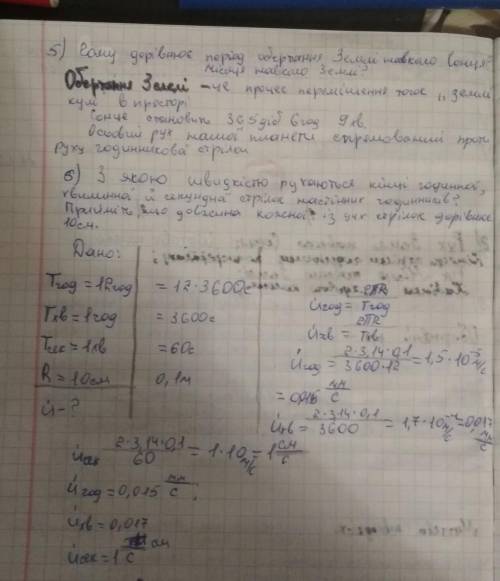 5) Чому дорівнює період обертання Землі навколо Сонця?
Місяця навколо Землі?
Обертання Землі – це процес переміщення точок "земної
кулі в просторі
Сонце становить 365 діб 6 год 9 хв.
Осовий рух нашої планети спрямований проти
руху годинникова стрілки
6) З якою швидкістю рухаються кінці годинної,
хвилинної й секундна стрілок настінних годинників?
Прийміть, що довжина кожної із цих стрілок дорівнює
10см.
Дано:
Tгод = 12год = 12·3600с
Tхв = 1год = 3600с
Tсек = 1хв = 60с
R = 10см 0,1м
U - ?
Uгод = 2πR / Tгод
Uхв = 2πR / Tхв
Uгод = 2·3,14·0,1 / 3600·12 = 1,5·10⁻⁵ м/с
= 0,015 мм/с
Uхв = 2·3,14·0,1 / 3600 = 1,7·10⁻⁴ м/с = 0,017 мм/с
Uсек 2·3,14·0,1 / 60 = 1·10 м/с = 1 см/с
Uгод = 0,015 мм/с ;
Uхв = 0,017
Uсек = 1 см/с